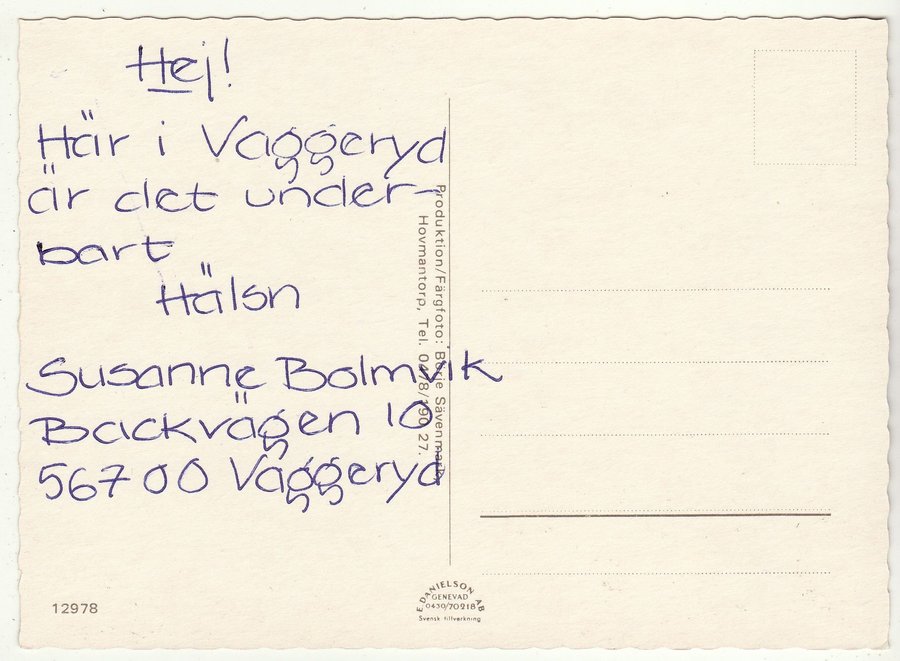 Hej!
Här i Vaggeryd
är det under-
bart
Hälsn
Susanne Bolmvik
Backvägen 10
56700 Vaggeryd
Produktion/Färgfoto: Börje Sävenmark,
Hovmantorp, Tel. 0478/190 27.
12978
E. DANIELSON AB
GENEVAD
0430/70218
Svensk tillverkning